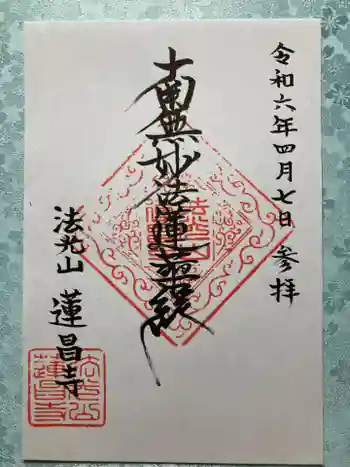 令和六年四月七日 参拝
南無妙法蓮華経
法光山 蓮昌寺
法光山
蓮昌寺